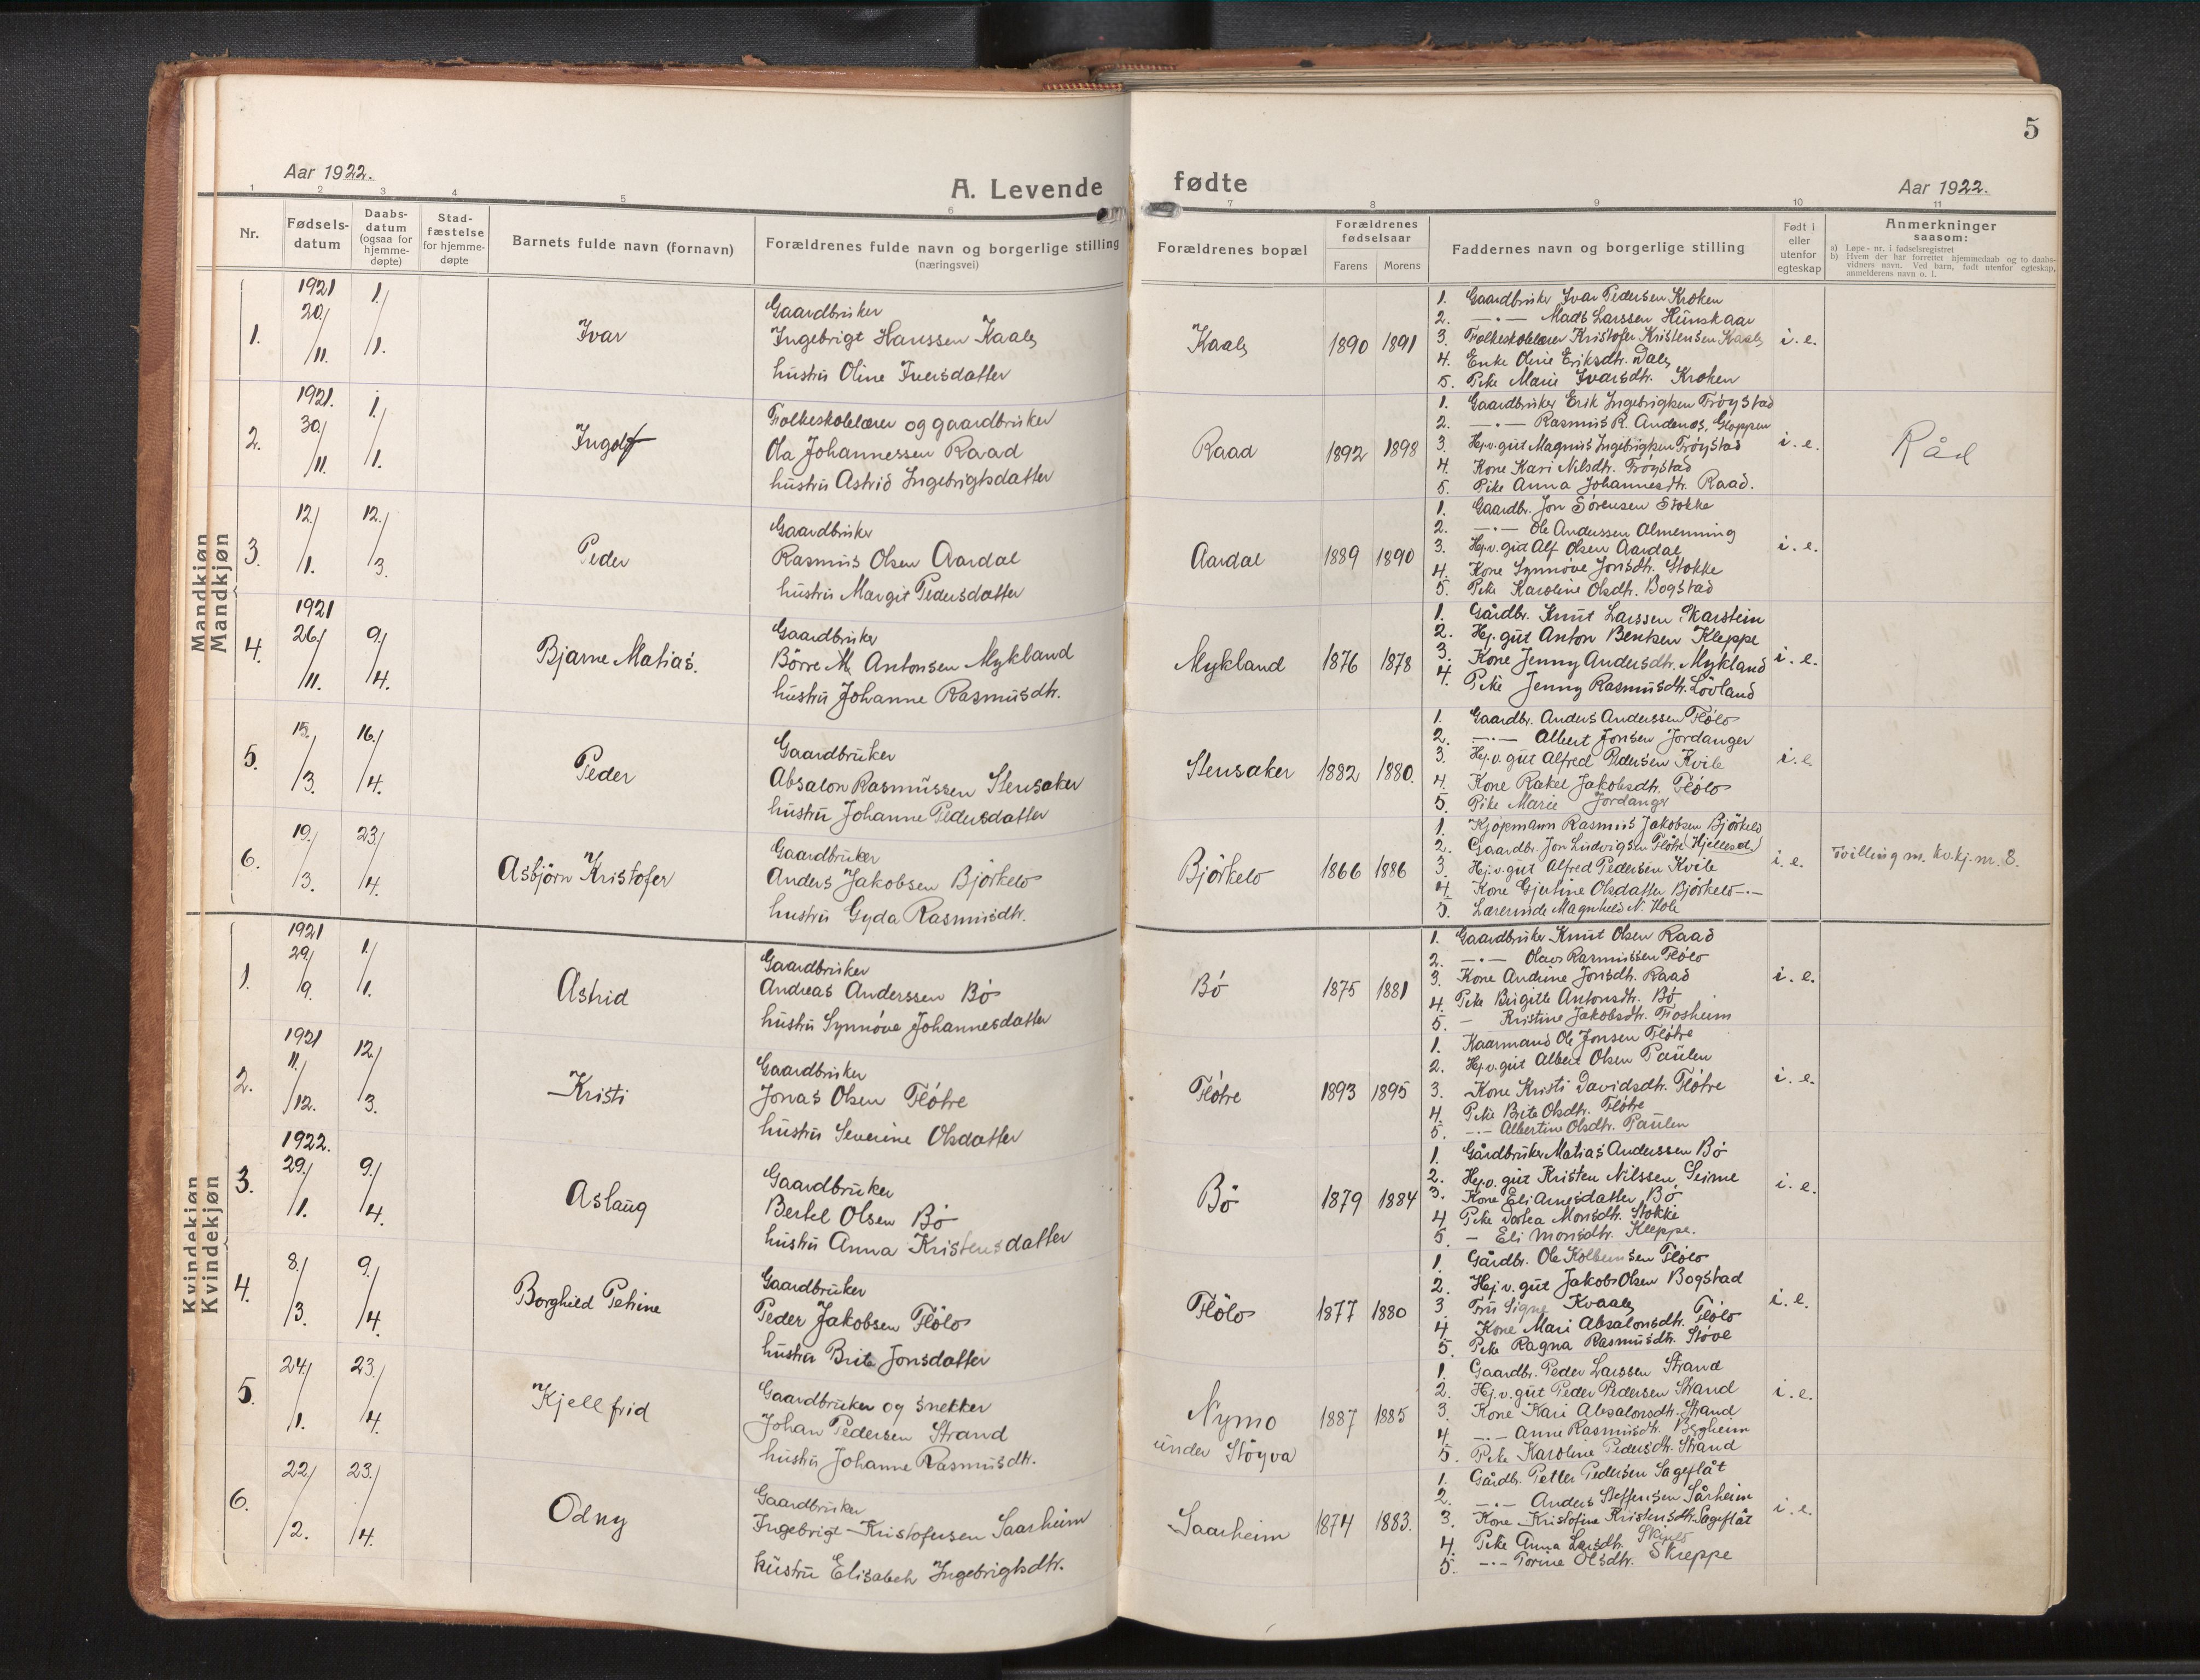 5
Aar 1922.
A. Levende fødte
Aar 1922.
1 2 3 4 5 6 7 8 9 10 11
Nr.
Fødsels-
datum
Daabs-
datum
(ogsaa for
hjemme-
døpte)
Stad-
fæstelse
for hjemme-
døpte
Barnets fulde navn (fornavn)
Forældrenes fulde navn og borgerlige stilling
(næringsvei)
Forældrenes bopæl
Forældrenes
fødselsaar
Farens Morens
Faddernes navn og borgerlige stilling
Født i
eller
utenfor
egteskap
Anmerkninger
saasom:
a) Løpe-nr. i fødselsregistret
b) Hvem der har forrettet hjemmedaab og to daabs-
vidners navn. Ved barn, født utenfor egteskap,
anmelderens navn o. l.
Mandkjøn
Mandkjøn
1.
1921
20/11.
1/1.
Ivar
Gaardbruker
Ingebrigt Hanssen Kaale
hustru Oline Iversdatter
Kaale
1890 1891
1. Gaardbruker Ivar Pedersen Kroken
2. —·— Mads Larssen Hunskaar
3. Folkeskolelærer Kristofer Kristensen Kaale
4. Enke Oline Eriksdtr. Dale
5. Pike Marie Ivarsdtr. Kroken
i. e.
2.
1921.
30/11.
1/1.
Ingolf
Folkeskolelærer og gaardbruker
Ola Johannessen Raad
hustru Astrid Ingebrigtsdatter
Raad
1892 1898
1. Gaardbruker Erik Ingebrigtsen Frøystad
2. —·— Rasmus R. Andenes, Gloppen
3. Hj.v. gut Magnus Ingebrigtsen Frøystad
4. Kone Kari Nilsdtr. Frøystad
5. Pike Anna Johannesdtr. Raad.
i. e.
Råd
3.
12./1.
12./3.
Peder
Gaardbruker
Rasmus Olsen Aardal
hustru Margit Pedersdatter
Aardal
1889 1890
1. Gaardbr. Jon Sørensen Stokke
2. —·— Ole Anderssen Almenning
3. Hj.v. gut Alf Olsen Aardal
4. Kone Synnøve Jonsdtr. Stokke
5. Pike Karoline Olsdtr. Bogstad
i. e.
4.
1921
26./11.
9./4.
Bjarne Matias.
Gaardbruker
Börre M Antonsen Mykland
hustru Johanne Rasmusdtr.
Mykland
1876 1878
1. Gårdbr. Knut Larssen Skarstein
2. Hj. gut Anton Bentsen Kleppe
3. Kone Jenny Andersdtr. Mykland
4. Pike Jenny Rasmusdtr. Lövland
i. e.
5.
15./3.
16./4.
Peder
Gaardbruker
Absalon Rasmussen Stensaker
hustru Johanne Pedersdatter
Stensaker
1882 1880.
1. Gaardbr. Anders Anderssen Flölo
2. —·— Albert Jonsen Jordanger
3. Hj.v. gut Alfred Pedersen Kvile
4. Kone Rakel Jakobsdtr. Flölo
5. Pike Marie Jordanger
i. e.
6.
19./3.
23/4.
Asbjörn Kristofer
Gaardbruker
Anders Jakobsen Björkelo
hustru Gyda Rasmusdtr.
Björkelo
1866 1886
1. Kjöpmann Rasmus Jakobsen Björkelo
2. Gaardbr. Jon Ludvigsen Flötre (Hjellesd.)
3. Hj.v. gut Alfred Pedersen Kvile
4. Kone Gjertine Olsdatter Björkelo —·—
5. Lærerinde Magnhild N. Hole
i. e.
Tvilling m. kv.kj. nr. 8.
Kvindekjøn
Kvindekjøn
1.
1921
29/9.
1./1.
Astrid
Gaardbruker
Andreas Anderssen Bö
hustru Synnøve Johannesdatter
Bö
1875 1881
1. Gaardbruker Knut Olsen Raad
2. —·— Olaus Rasmussen Flölo
3. Kone Andrine Jonsdtr. Raad
4. Pike Birgitte Antonsdtr. Bö
5. — Kristine Jakobsdtr. Frosheim
i. e.
2.
1921
11./12.
12./3.
Kristi
Gaardbruker
Jonas Olsen Flötre
hustru Severine Olsdatter
Flötre
1893 1895
1. Kaarmand Ole Jonsen Flötre
2. Hj.v. gut Albert Olsen Paulen
3. Kone Kristi Davidsdtr. Flötre
4. Pike Brite Olsdtr. Flötre
5. —·— Albertine Olsdtr. Paulen
i. e.
3.
1922.
29./1.
9./4.
Aslaug
Gaardbruker
Bertel Olsen Bö
hustru Anna Kristensdatter
Bö
1879 1884
1. Gårdbruker Matias Anderssen Bö
2. Hj.v. gut Kristen Nilssen Seime
3. Kone Eli Arnesdatter Bö
4. Pike Dortea Monsdtr. Stokke
5. — Eli Monsdtr. Kleppe.
i. e.
4.
8./3.
9./4.
Borghild Petrine
Gaardbruker
Peder Jakobsen Flölo
hustru Brite Jonsdatter
Flölo
1877 1880
1. Gårdbr. Ole Kolbeinsen Flölo
2. Hj.v. gut Jakob Olsen Bogstad
3 Fru Signe Kvaale
4. Kone Mari Absalonsdtr. Flölo
5. Pike Ragna Rasmusdtr. Støve
i. e.
5.
24./1.
23./4.
Kjellfrid
Gaardbruker og snekker
Johan Pedersen Strand
hustru Johanne Rasmusdtr.
Nymo
under Støyva
1887 1885
1. Gaardbr. Peder Larssen Strand
2. Hj.v. gut Peder Pedersen Strand
3. Kone Kari Absalonsdtr. Strand
4. —·— Anne Rasmusdtr. Bergheim
5. Pike Karoline Pedersdtr. Strand
i. e.
6.
22./2.
23./4.
Odny
Gaardbruker
Ingebrigt Kristofersen Saarheim
hustru Elisabeth Ingebrigtsdtr.
Saarheim
1874 1883.
1. Gårdb. Petter Pedersen Sageflåt
2. —·— Anders Steffensen Sårheim
3. Kone Kristofine Kristensdtr. Sageflåt
4. Pike Anna Larsdtr.
5. —·— Torine Olsdtr. Skreppe
i. e.